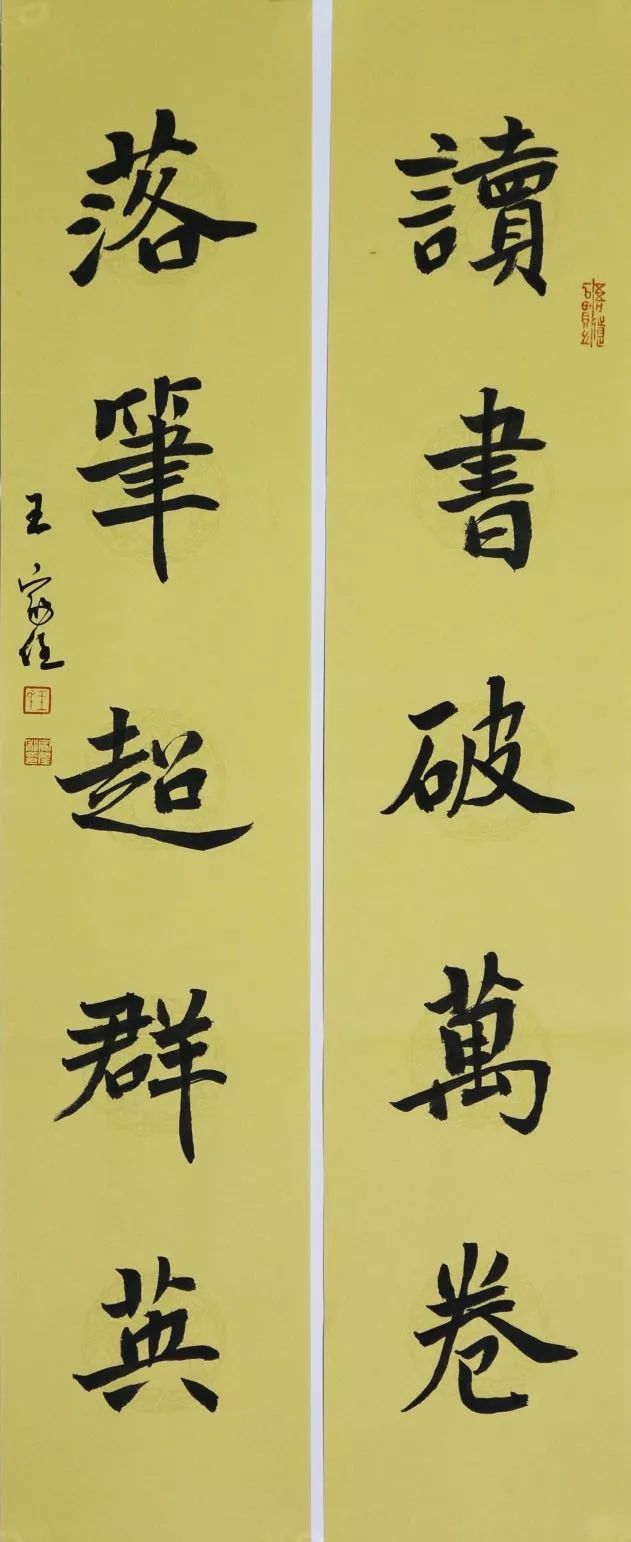 讀書破萬卷
落筆超群英
王家佳